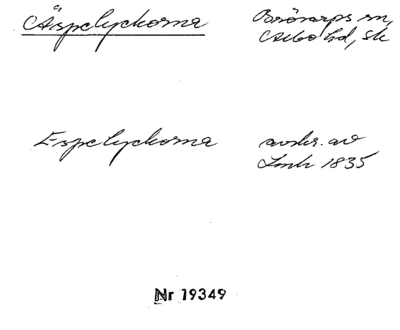 Äspelyckorna
Brönarps sn,
Albo hd, Sk
Espelyckorna
avskr. av
Lmk 1835
Nr 19349